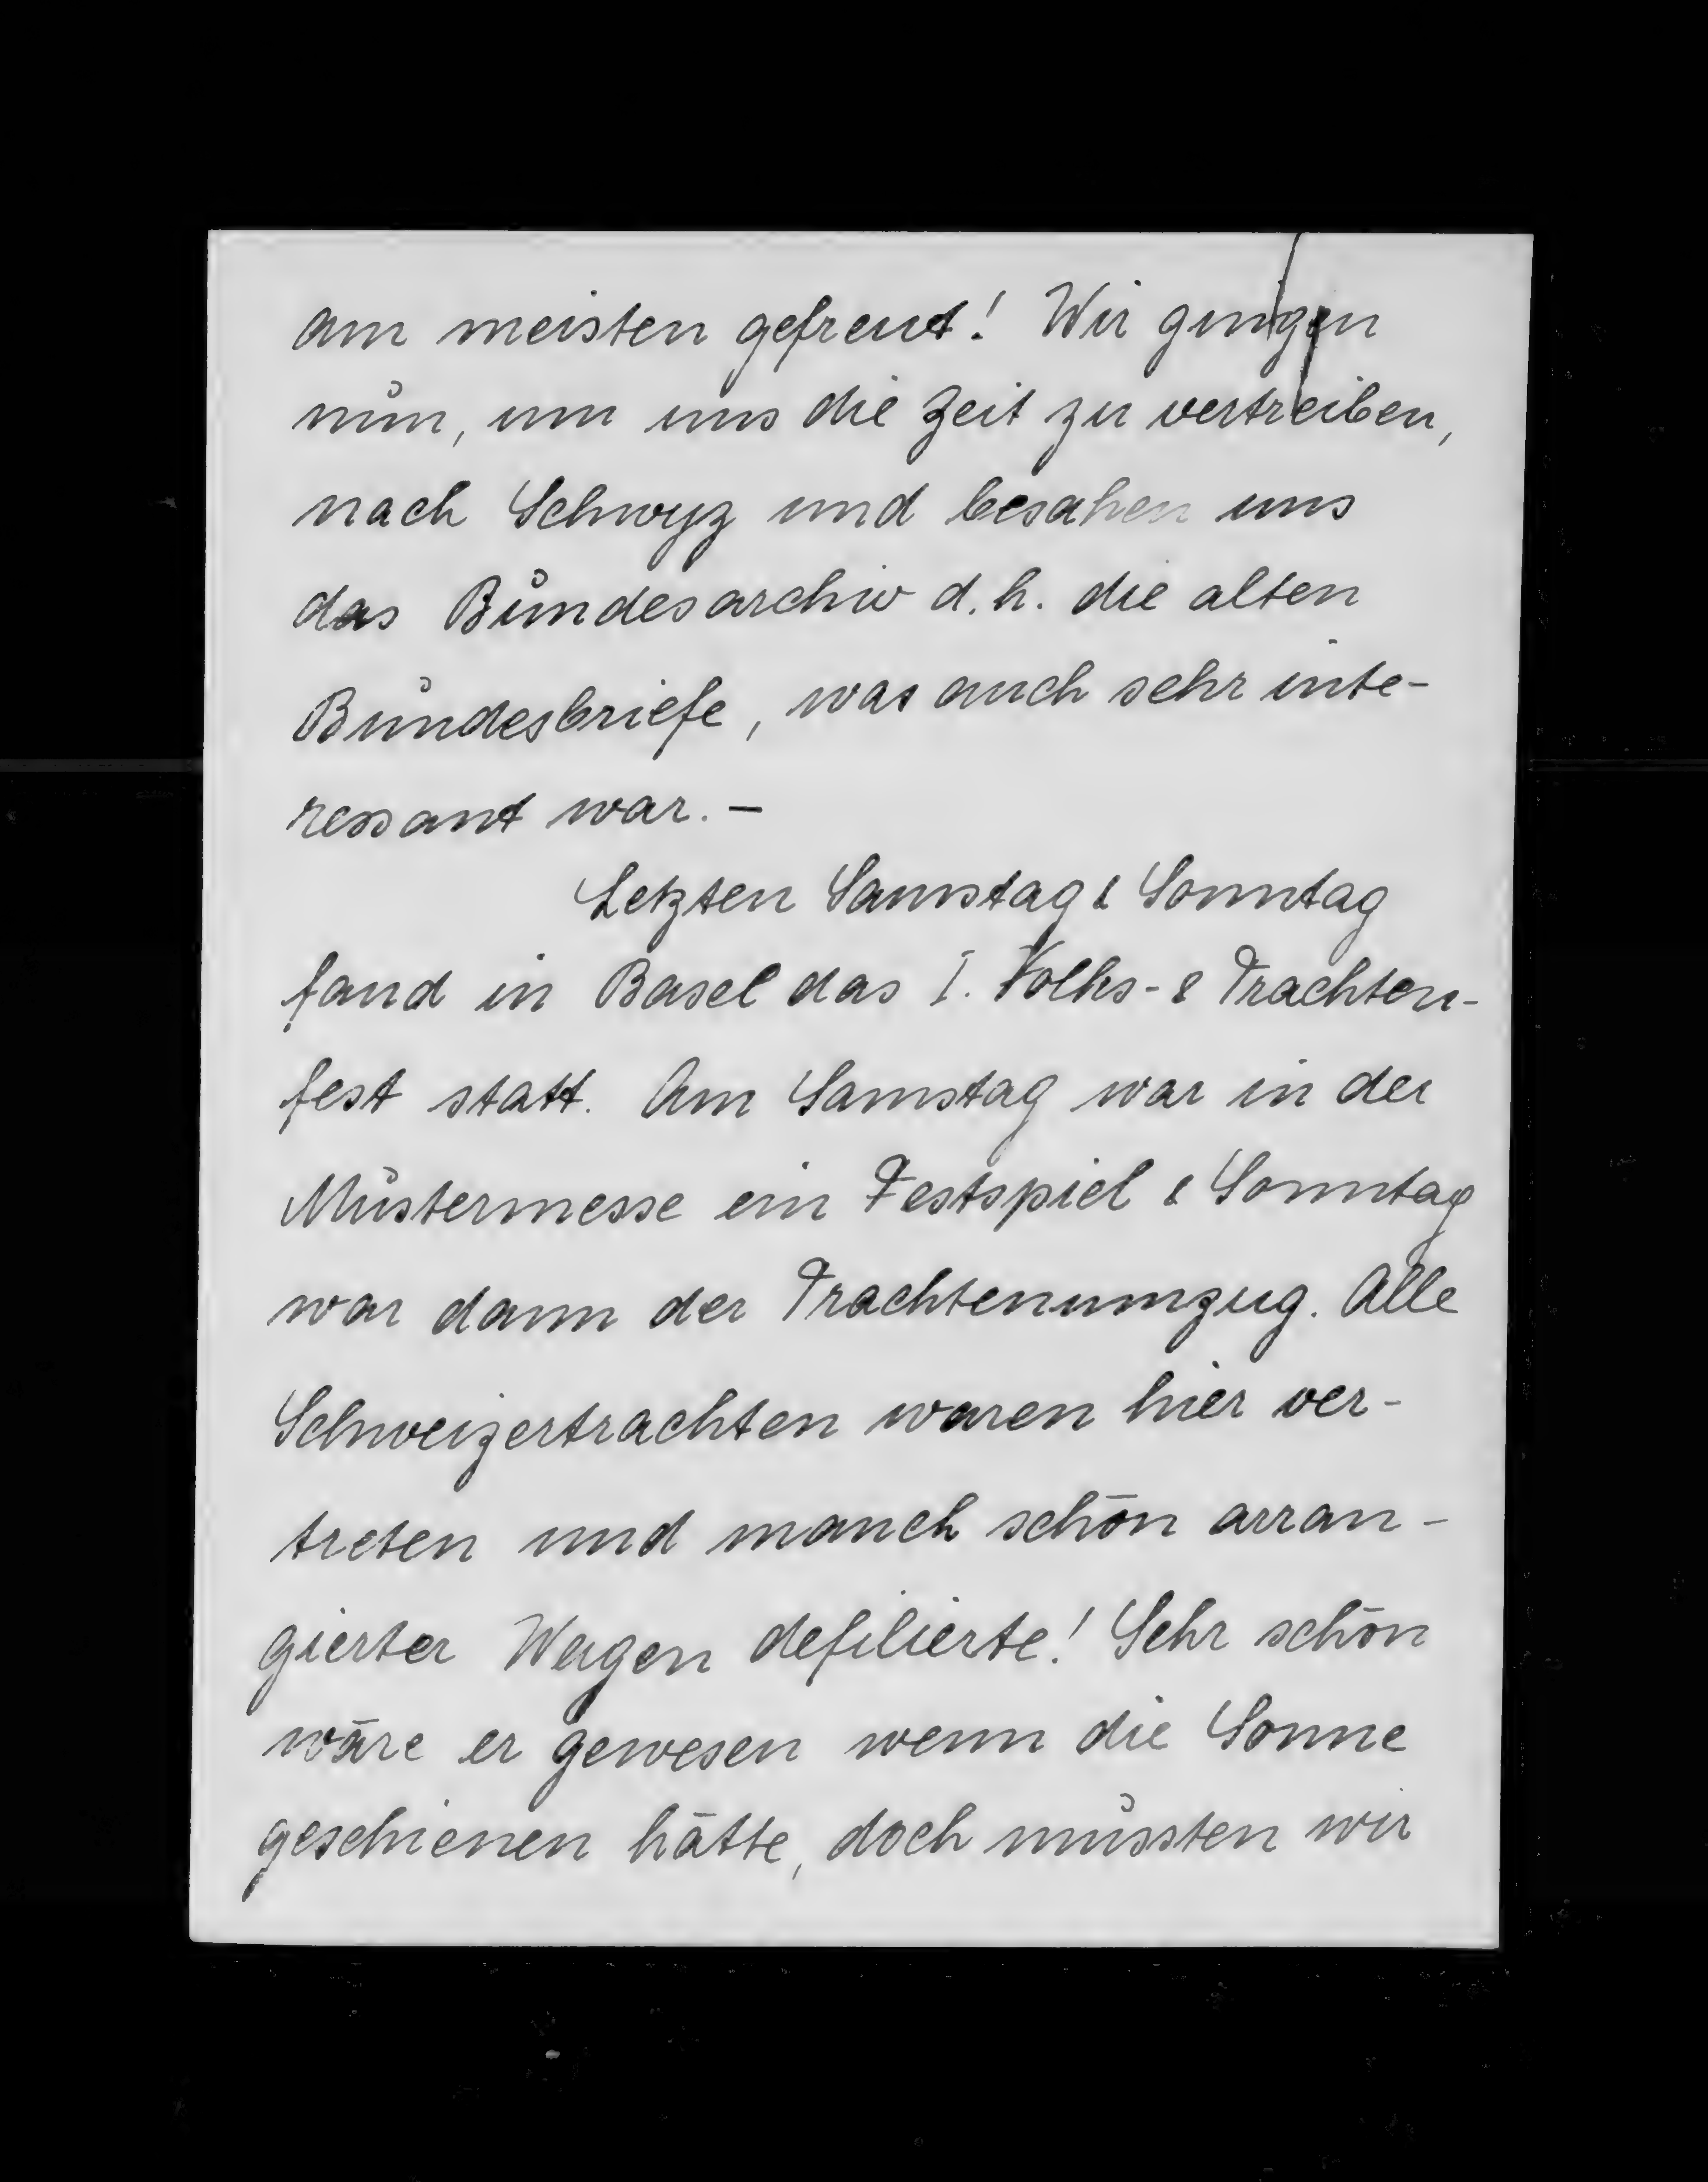 am meisten gefreut! Wir gingen
nun, um uns die Zeit zu vertreiben,
nach Schwyz und besahen uns
das Bundesarchiv d. h. die alten
Bundesbriefe, was auch sehr inte-
ressant war. –
Letzten Samstag & Sonntag
fand in Basel das I. Volks- & Trachten-
fest statt. Am Samstag war in der
Mustermesse ein Festspiel & Sonntag
war dann der Trachtenumzug. Alle
Schweizertrachten waren hier ver-
treten und manch schön arran-
gierter Wagen defilierte! Sehr schön
wäre er gewesen wenn die Sonne
geschienen hätte, doch mussten wir